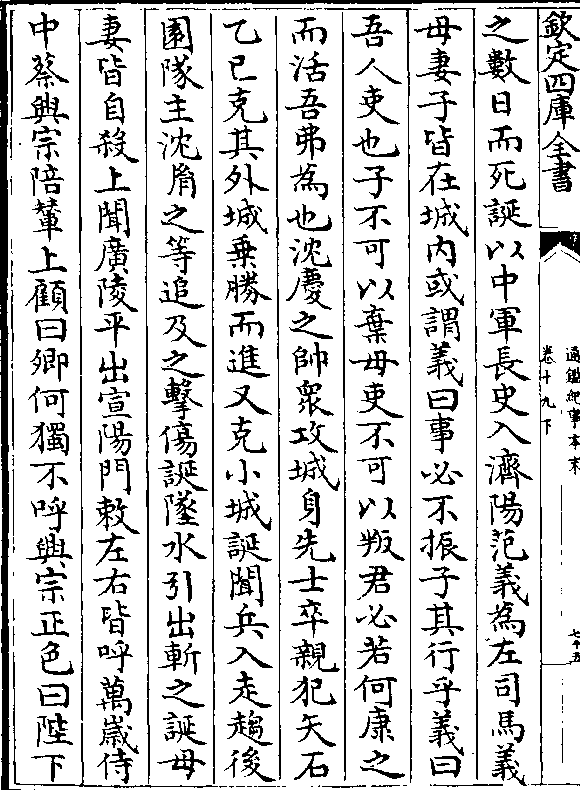 欽定四庫全書
通鑑紀事本末
卷十九下
七十五
之數日而死誕以中軍長史入濟陽范義為左司馬義
母妻子皆在城内或謂義曰事必不振子其行乎義曰
吾人吏也子不可以棄母吏不可以叛君必若何康之
而活吾弗為也沈慶之帥衆攻城身先士卒親犯矢石
乙巳克其外城乗勝而進又克小城誕聞兵入走趨後
園隊主沈𦙍之等追及之擊傷誕墜水引出斬之誕母
妻皆自殺上聞廣陵平出宣陽門敕左右皆呼萬嵗侍
中蔡興宗陪輦上顧曰卿何獨不呼興宗正色曰陛下